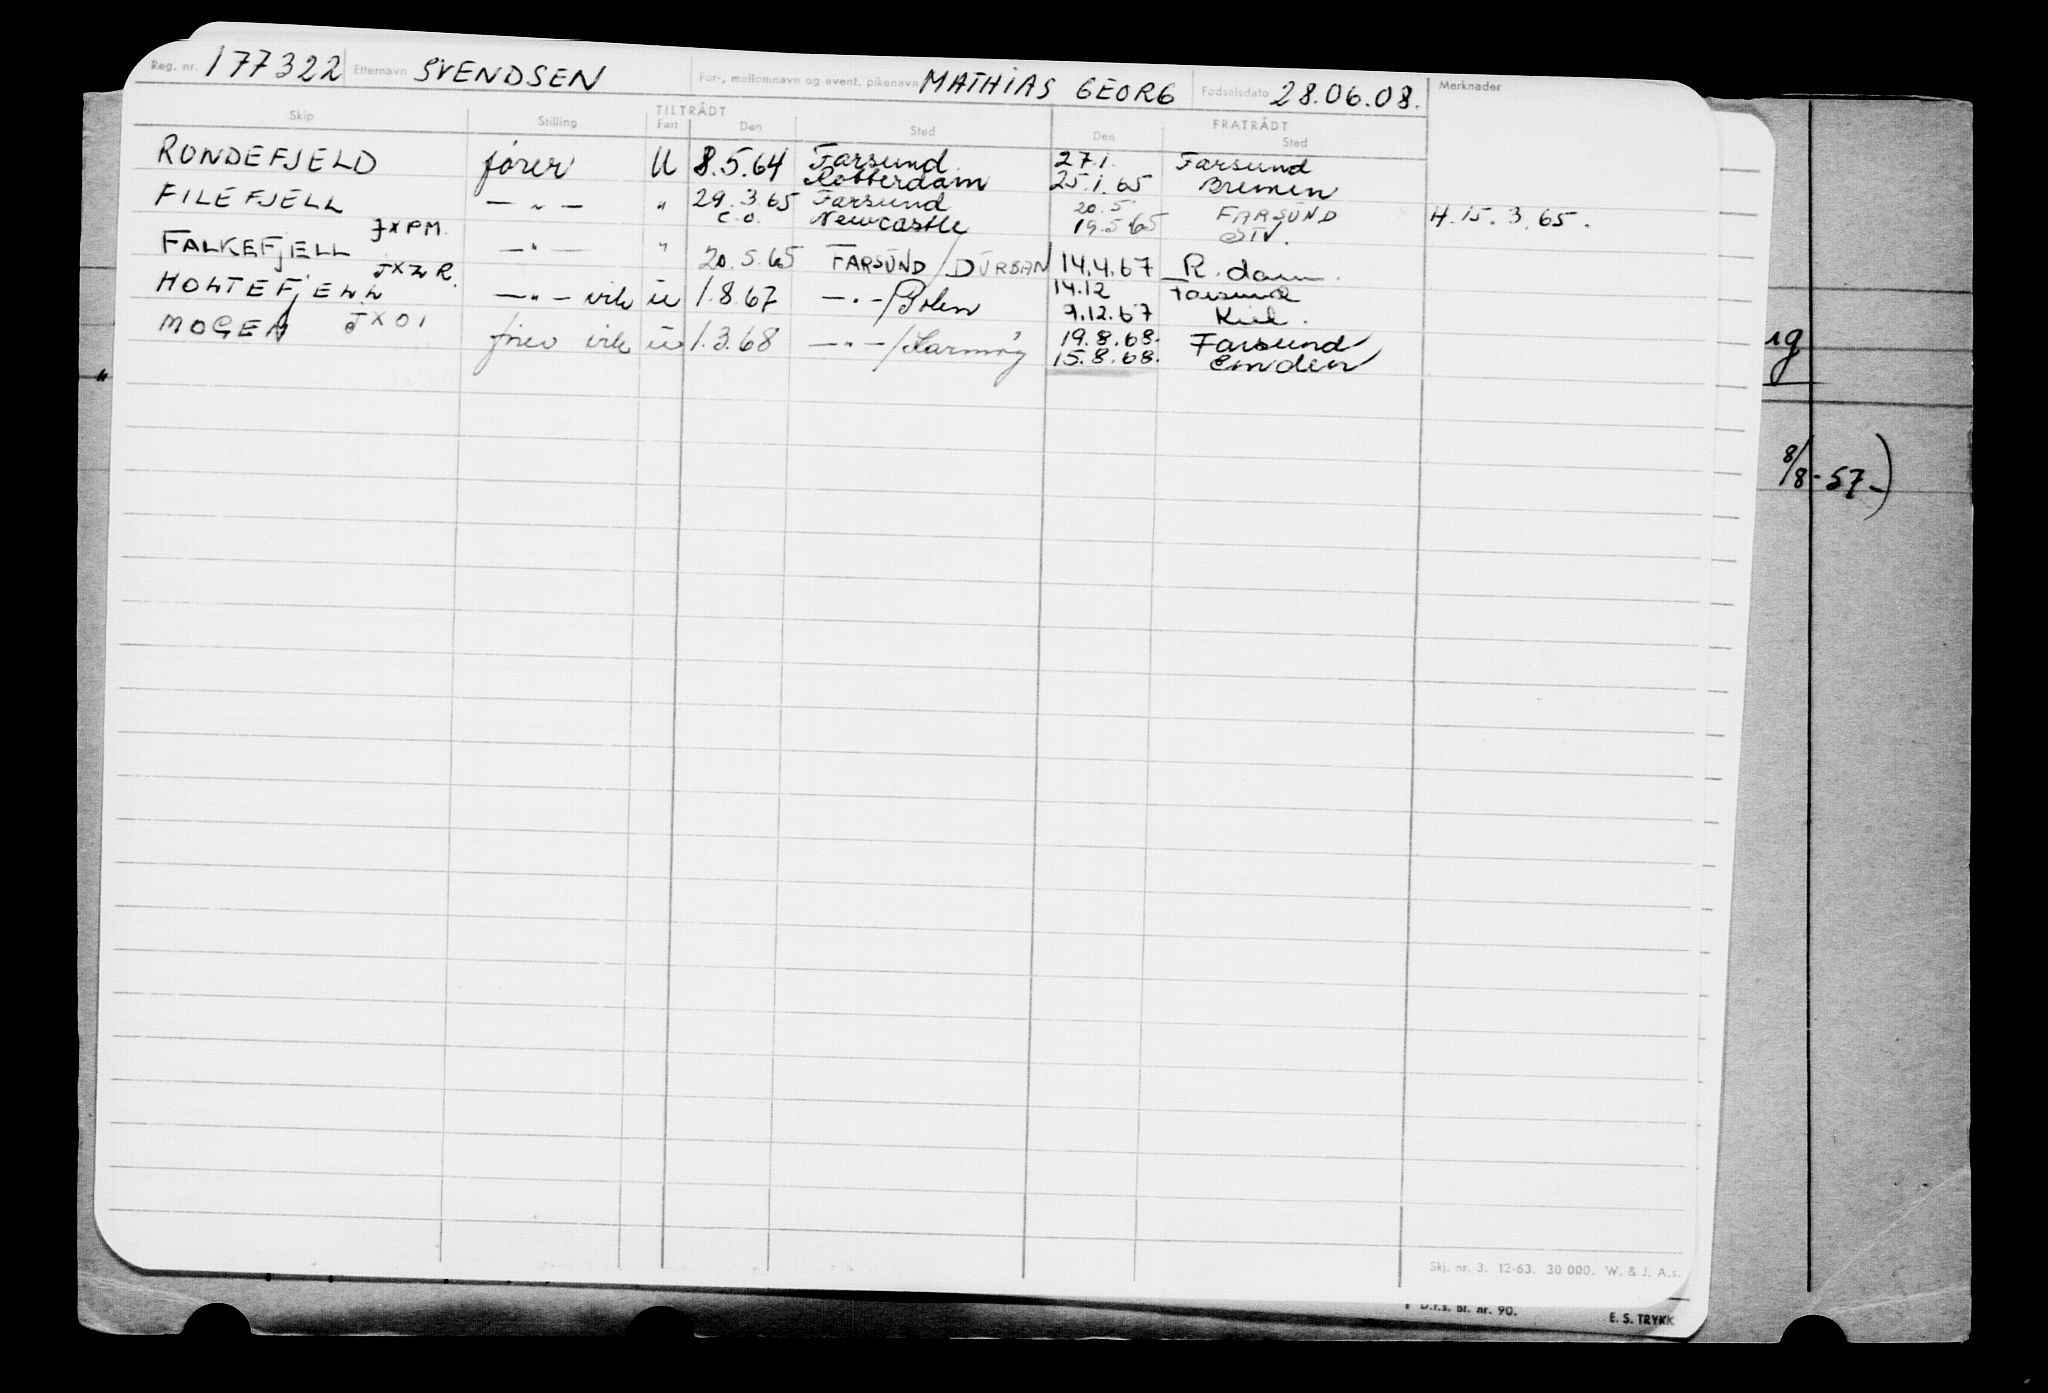 Reg. nr. 177322 Etternavn SVENDSEN For-, mellomnavn og event. pikenavn MATHIAS GEORG Fødselsdato 28.06.08. Merknader
TILTRÅDT FRATRÅDT
Skip Stilling Fart Den Sted Den Sted
RONDEFJELD fører U 8.5.64 Farsund 27.1. Farsund
Rotterdam 25.1.65 Bremen
FILEFJELL — " — " 29.3.65 Farsund 20.5 FARSUND H. 15.3.65.
c.o. Newcastle 19.5.65
JXPM.
FALKEFJELL — " — " 20.5.65 FARSUND / DURBAN 14.4.67 R.dam.
JXZR.
HOLTEFJELL — " — vik u 1.8.67 — " — / 14.12 Farsund
9.12.67 Kiel.
MOGEN JXOI fører vik u 1.3.68 — " — / 19.8.68. Farsund
15.8.68. Emden
"
ug
8/8-57-)
Skj. nr. 3. 12-63. 30 000. W. & J. A.s.
D.f.s. Bl. nr. 90. E. S. TRYKK